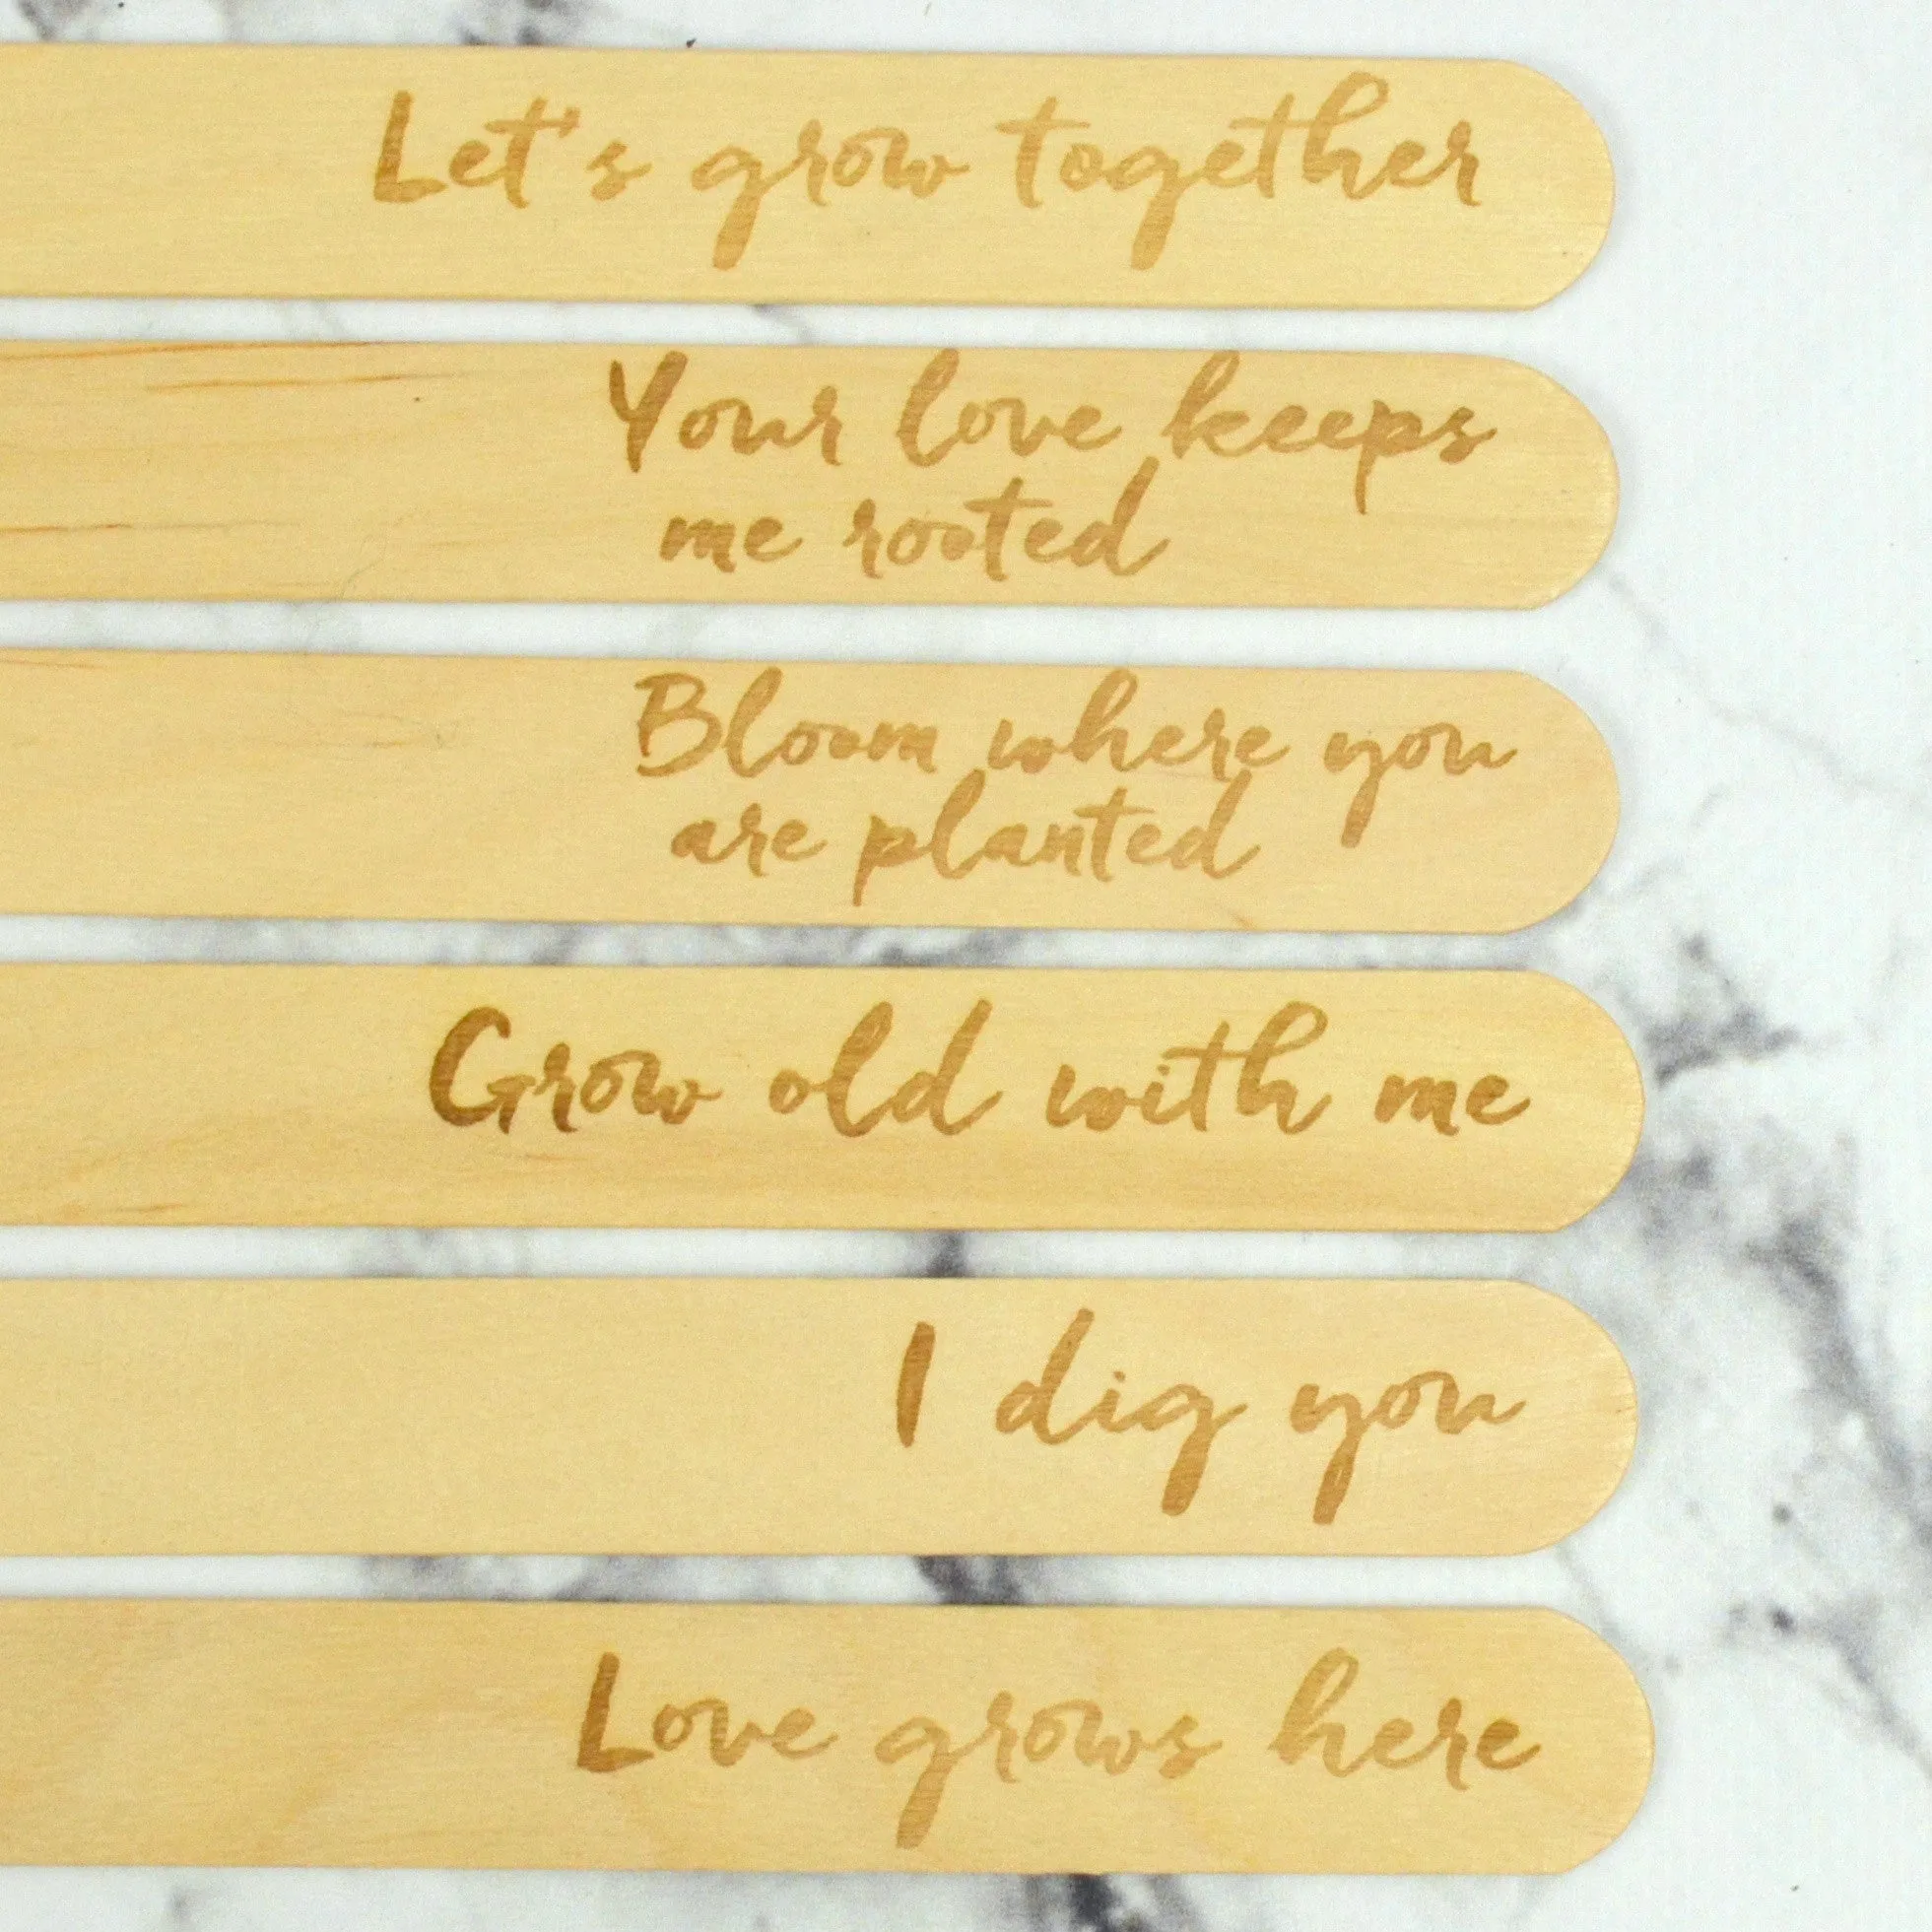 Let's grow together
Your love keeps
me rooted
Bloom where you
are planted
Grow old with me
I dig you
Love grows here